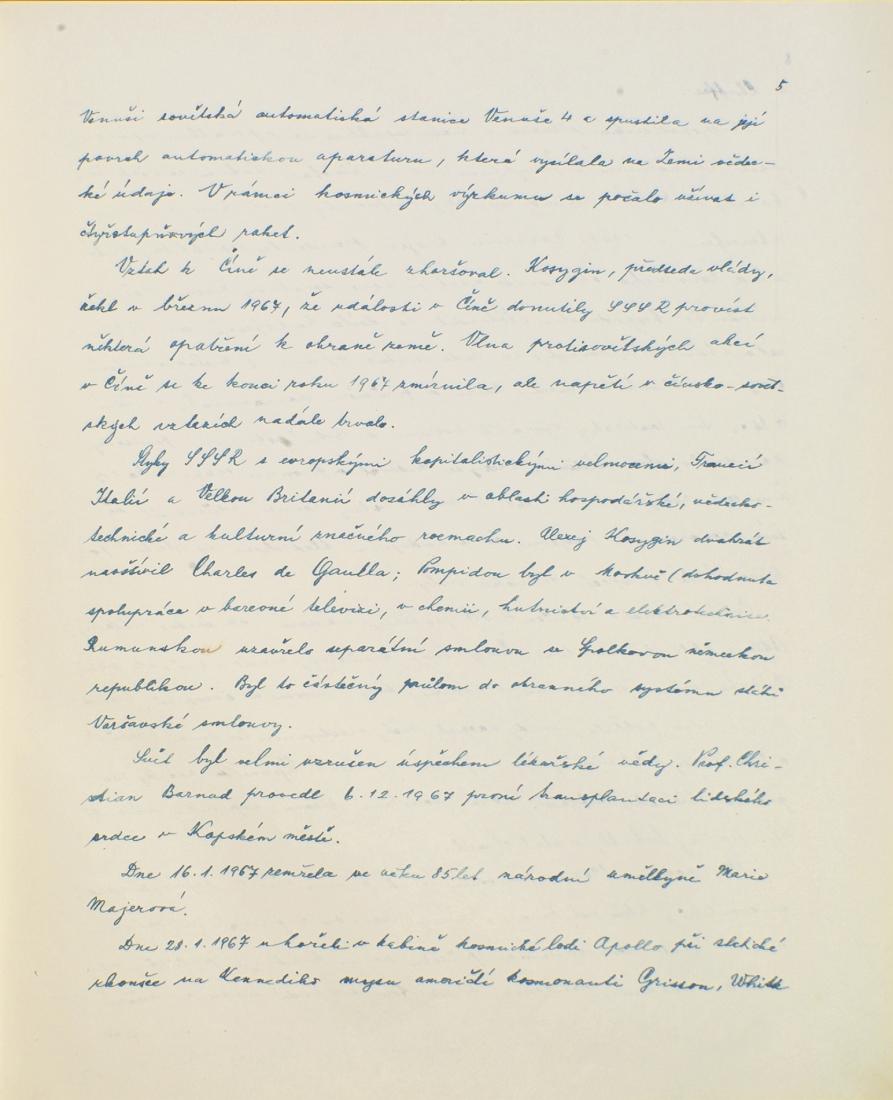 5
Venuši sovětská automatická stanice Venuše 4 a spustila na její
povrch automatickou aparaturu, která vysílala na Zemi vědec-
ké údaje. V rámci kosmických výzkumu se počalo užívat i
čtyřstupňových raket.
Vztah k Číně se neustále zhoršoval. Kosygin, předseda vlády,
řekl v březnu 1967, že události v Číně donutily SSSR provést
některá opatření k obraně země. Vlna protisovětských akcí
v Číně se ke konci roku 1967 zmírnila, ale napětí v čínsko-sovět-
ských vztazích nadále trvalo.
Styky SSSR s evropskými kapitalistickými velmocemi, Francií
Italií a Velkou Britanií dosáhly v oblasti hospodářské, vědecko-
technické a kulturní značného rozmachu. Alexej Kosygin dvakrát
navštívil Charles de Gaulla; Pompidou byl v Moskvě (dohodnuta
spolupráce v barevné televizi, v chemii, hutnictví a elektrotechnice.
Rumunskou uzavřelo separátní smlouvu se Spolkovou německou
republikou. Byl to částečný průlom do obranného systému států
Varšavské smlouvy.
Svět byl velmi vzrušen úspěchem lékařské vědy. Prof. Chri-
stian Barnad provedl 6.12.1967 první transplantaci lidského
srdce v Kapském městě.
Dne 16.1.1967 zemřela ve věku 85 let národní umělkyně Marie
Majerová.
Dne 28.1.1967 uhořeli v kabině kosmické lodi Apollo při statické
zkoušce na Kennediho mysu američtí kosmonauti Grisson, White